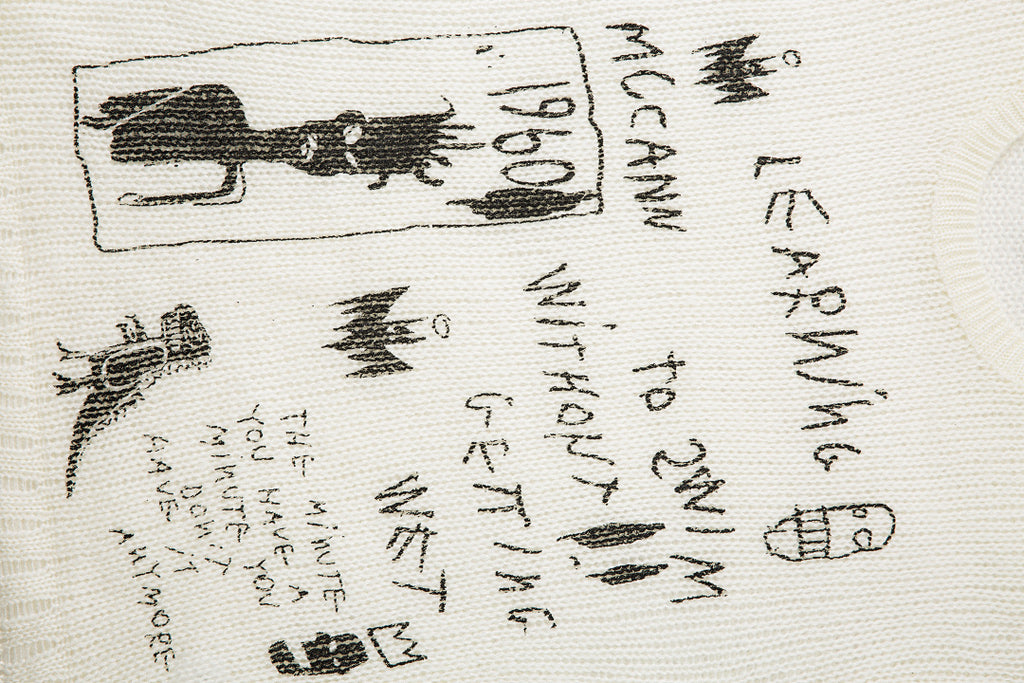 LEARNiNG
to SWIM
MCCANN
WiTHOUT
1960
GETTING
WET
THE MiNUTE
YOU HAVE A
MiNUTE YOU
DON'T
HAVE IT
ANYMORE